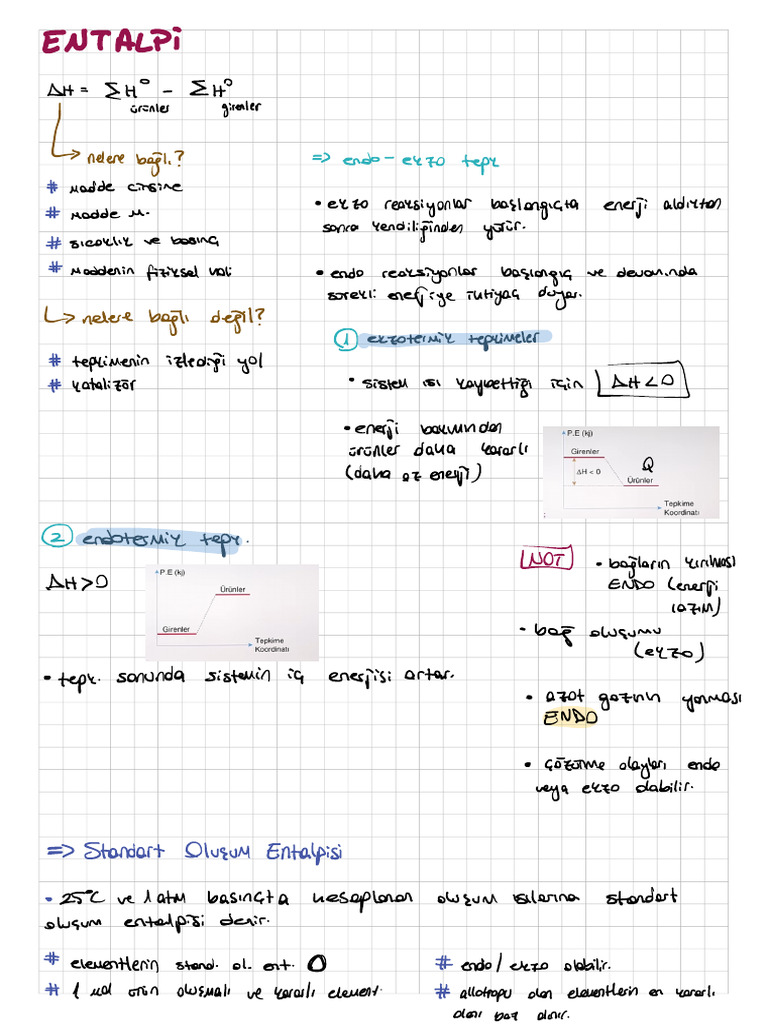 ENTALPİ
ΔH = ΣH° - ΣH°
ürünler girenler
nelere bağlı?
# madde cinsine
# madde m.
# sıcaklık ve basınç
# maddenin fiziksel hali
nelere bağlı değil?
# tepkimenin izlediği yol
# katalizör
=> endo - ekzo tepk
• ekzo reaksiyonlar başlangıçta enerji aldıktan
sonra kendiliğinden yürür.
• endo reaksiyonlar başlangıç ve devamında
sürekli enerjiye ihtiyaç duyar.
1 ekzotermik tepkimeler
• sistem ısı kaybettiği için ΔH < 0
• enerji bakımından
ürünler daha kararlı
(daha az enerji)
P.E (kj)
Girenler
ΔH < 0
Q
Ürünler
Tepkime
Koordinatı
2 endotermik tepk.
ΔH > 0
P.E (kj)
Ürünler
Girenler
Tepkime
Koordinatı
• tepk. sonunda sistemin iç enerjisi artar.
NOT
• bağların kırılması
ENDO (enerji
lazım)
• bağ oluşumu
(ekzo)
• azot gazının yanması
ENDO
• çözünme olayları endo
veya ekzo olabilir.
=> Standart Oluşum Entalpisi
• 25°C ve 1 atm basınçta hesaplanan oluşum ısılarına standart
oluşum entalpisi denir.
# elementlerin stand. ol. ent. 0
# 1 mol ürün oluşmalı ve kararlı element.
# endo/ekzo olabilir.
# allotropu olan elementlerin en kararlı
olanı baz alınır.